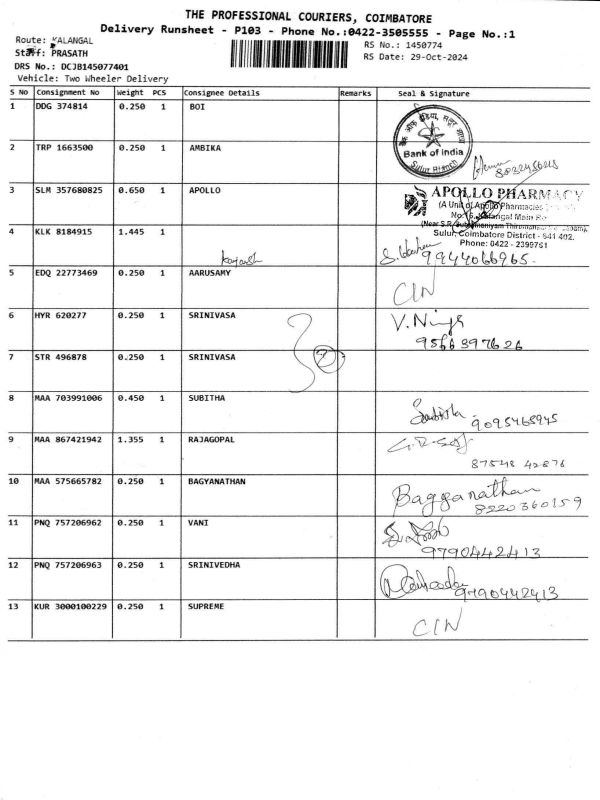 THE PROFESSIONAL COURIERS, COIMBATORE
Delivery Runsheet - P103 - Phone No.:0422-3505555 - Page No.:1
Route: KALANGAL
RS No.: 1450774
Staff: PRASATH
RS Date: 29-Oct-2024
DRS No.: DCJB145077401
Vehicle: Two Wheeler Delivery
S No Consignment No Weight PCS Consignee Details Remarks Seal & Signature
1 DDG 374814 0.250 1 BOI
Bank of India
Sulur Branch
2 TRP 1663500 0.250 1 AMBIKA
3 SLM 357680825 0.650 1 APOLLO
APOLLO PHARMACY
(A Unit of Apollo Pharmacies
Kalangal Main Ro
(Near S.R. Subramaniyam
Sulur, Coimbatore District - 641 402.
Phone: 0422 - 2399751
4 KLK 8184915 1.445 1
9944066965.
5 EDQ 22773469 0.250 1 AARUSAMY
CIN
6 HYR 620277 0.250 1 SRINIVASA
9566397626
7 STR 496878 0.250 1 SRINIVASA
2
8 MAA 703991006 0.450 1 SUBITHA
9095468945
9 MAA 867421942 1.355 1 RAJAGOPAL
87548 42876
10 MAA 575665782 0.250 1 BAGYANATHAN
Bagganathan
8220360159
11 PNQ 757206962 0.250 1 VANI
9790442413
12 PNQ 757206963 0.250 1 SRINIVEDHA
9790442413
13 KUR 3000100229 0.250 1 SUPREME
CIN